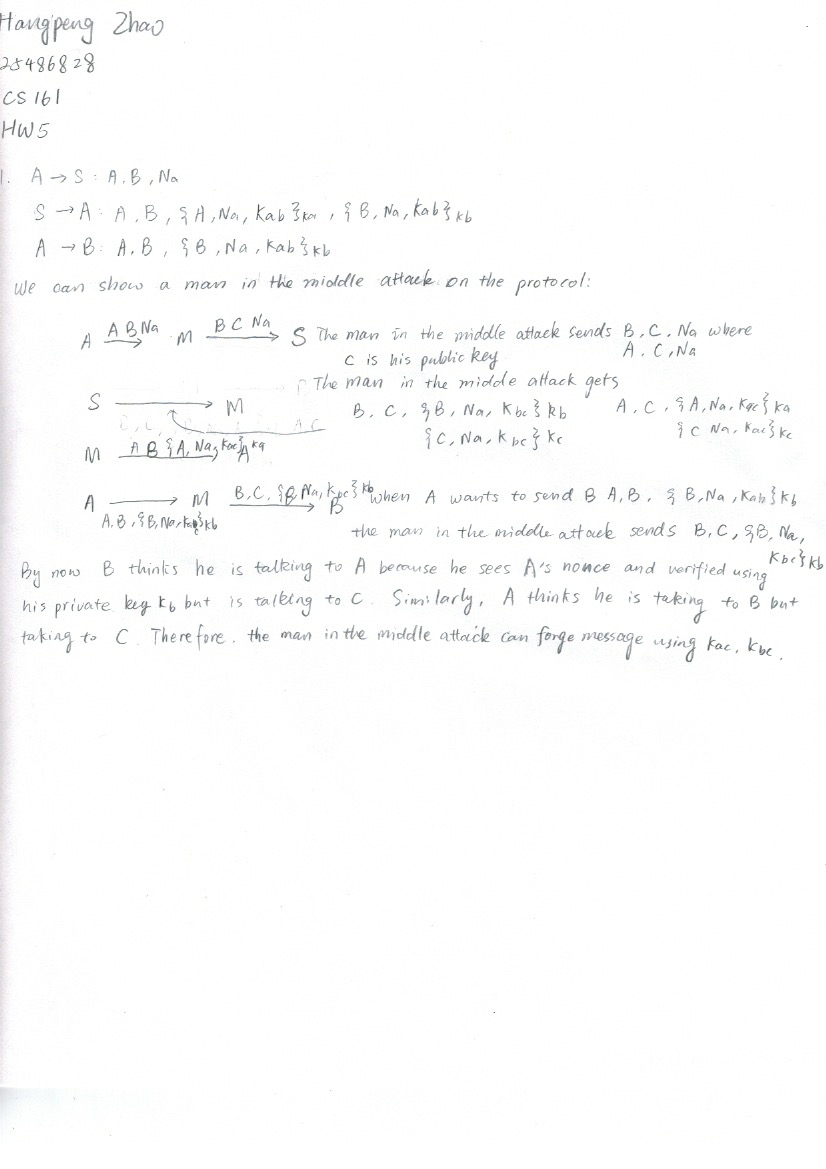 Hangpeng Zhao
25486828
CS 161
HW5
1. A → S : A, B, Na
S → A : A, B, {A, Na, Kab}ka, {B, Na, Kab}kb
A → B : A, B, {B, Na, Kab}kb
We can show a man in the middle attack on the protocol:
A A B Na → M B C Na → S The man in the middle attack sends B, C, Na where
C is his public key A, C, Na
The man in the middle attack gets
S → M B, C, {B, Na, Kbc}kb A, C, {A, Na, Kac}ka
{C, Na, Kbc}kc {C Na, Kac}kc
M A B {A, Na, Kac}ka → A
A → M B, C, {B, Na, Kbc}kb → B when A wants to send B A, B, {B, Na, Kab}kb
A, B, {B, Na, }kb the man in the middle attack sends B, C, {B, Na,
Kbc}kb
By now B thinks he is talking to A because he sees A's nonce and verified using
his private key kb but is talking to C. Similarly, A thinks he is taking to B but
taking to C. Therefore, the man in the middle attack can forge message using Kac, Kbc.